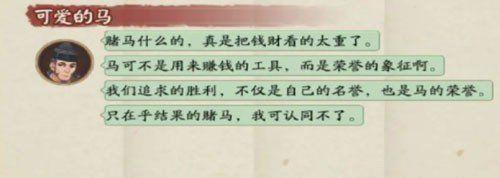 可爱的马
赌马什么的，真是把钱财看的太重了。
马可不是用来赚钱的工具，而是荣誉的象征啊。
我们追求的胜利，不仅是自己的名誉，也是马的荣誉。
只在乎结果的赌马，我可认同不了。